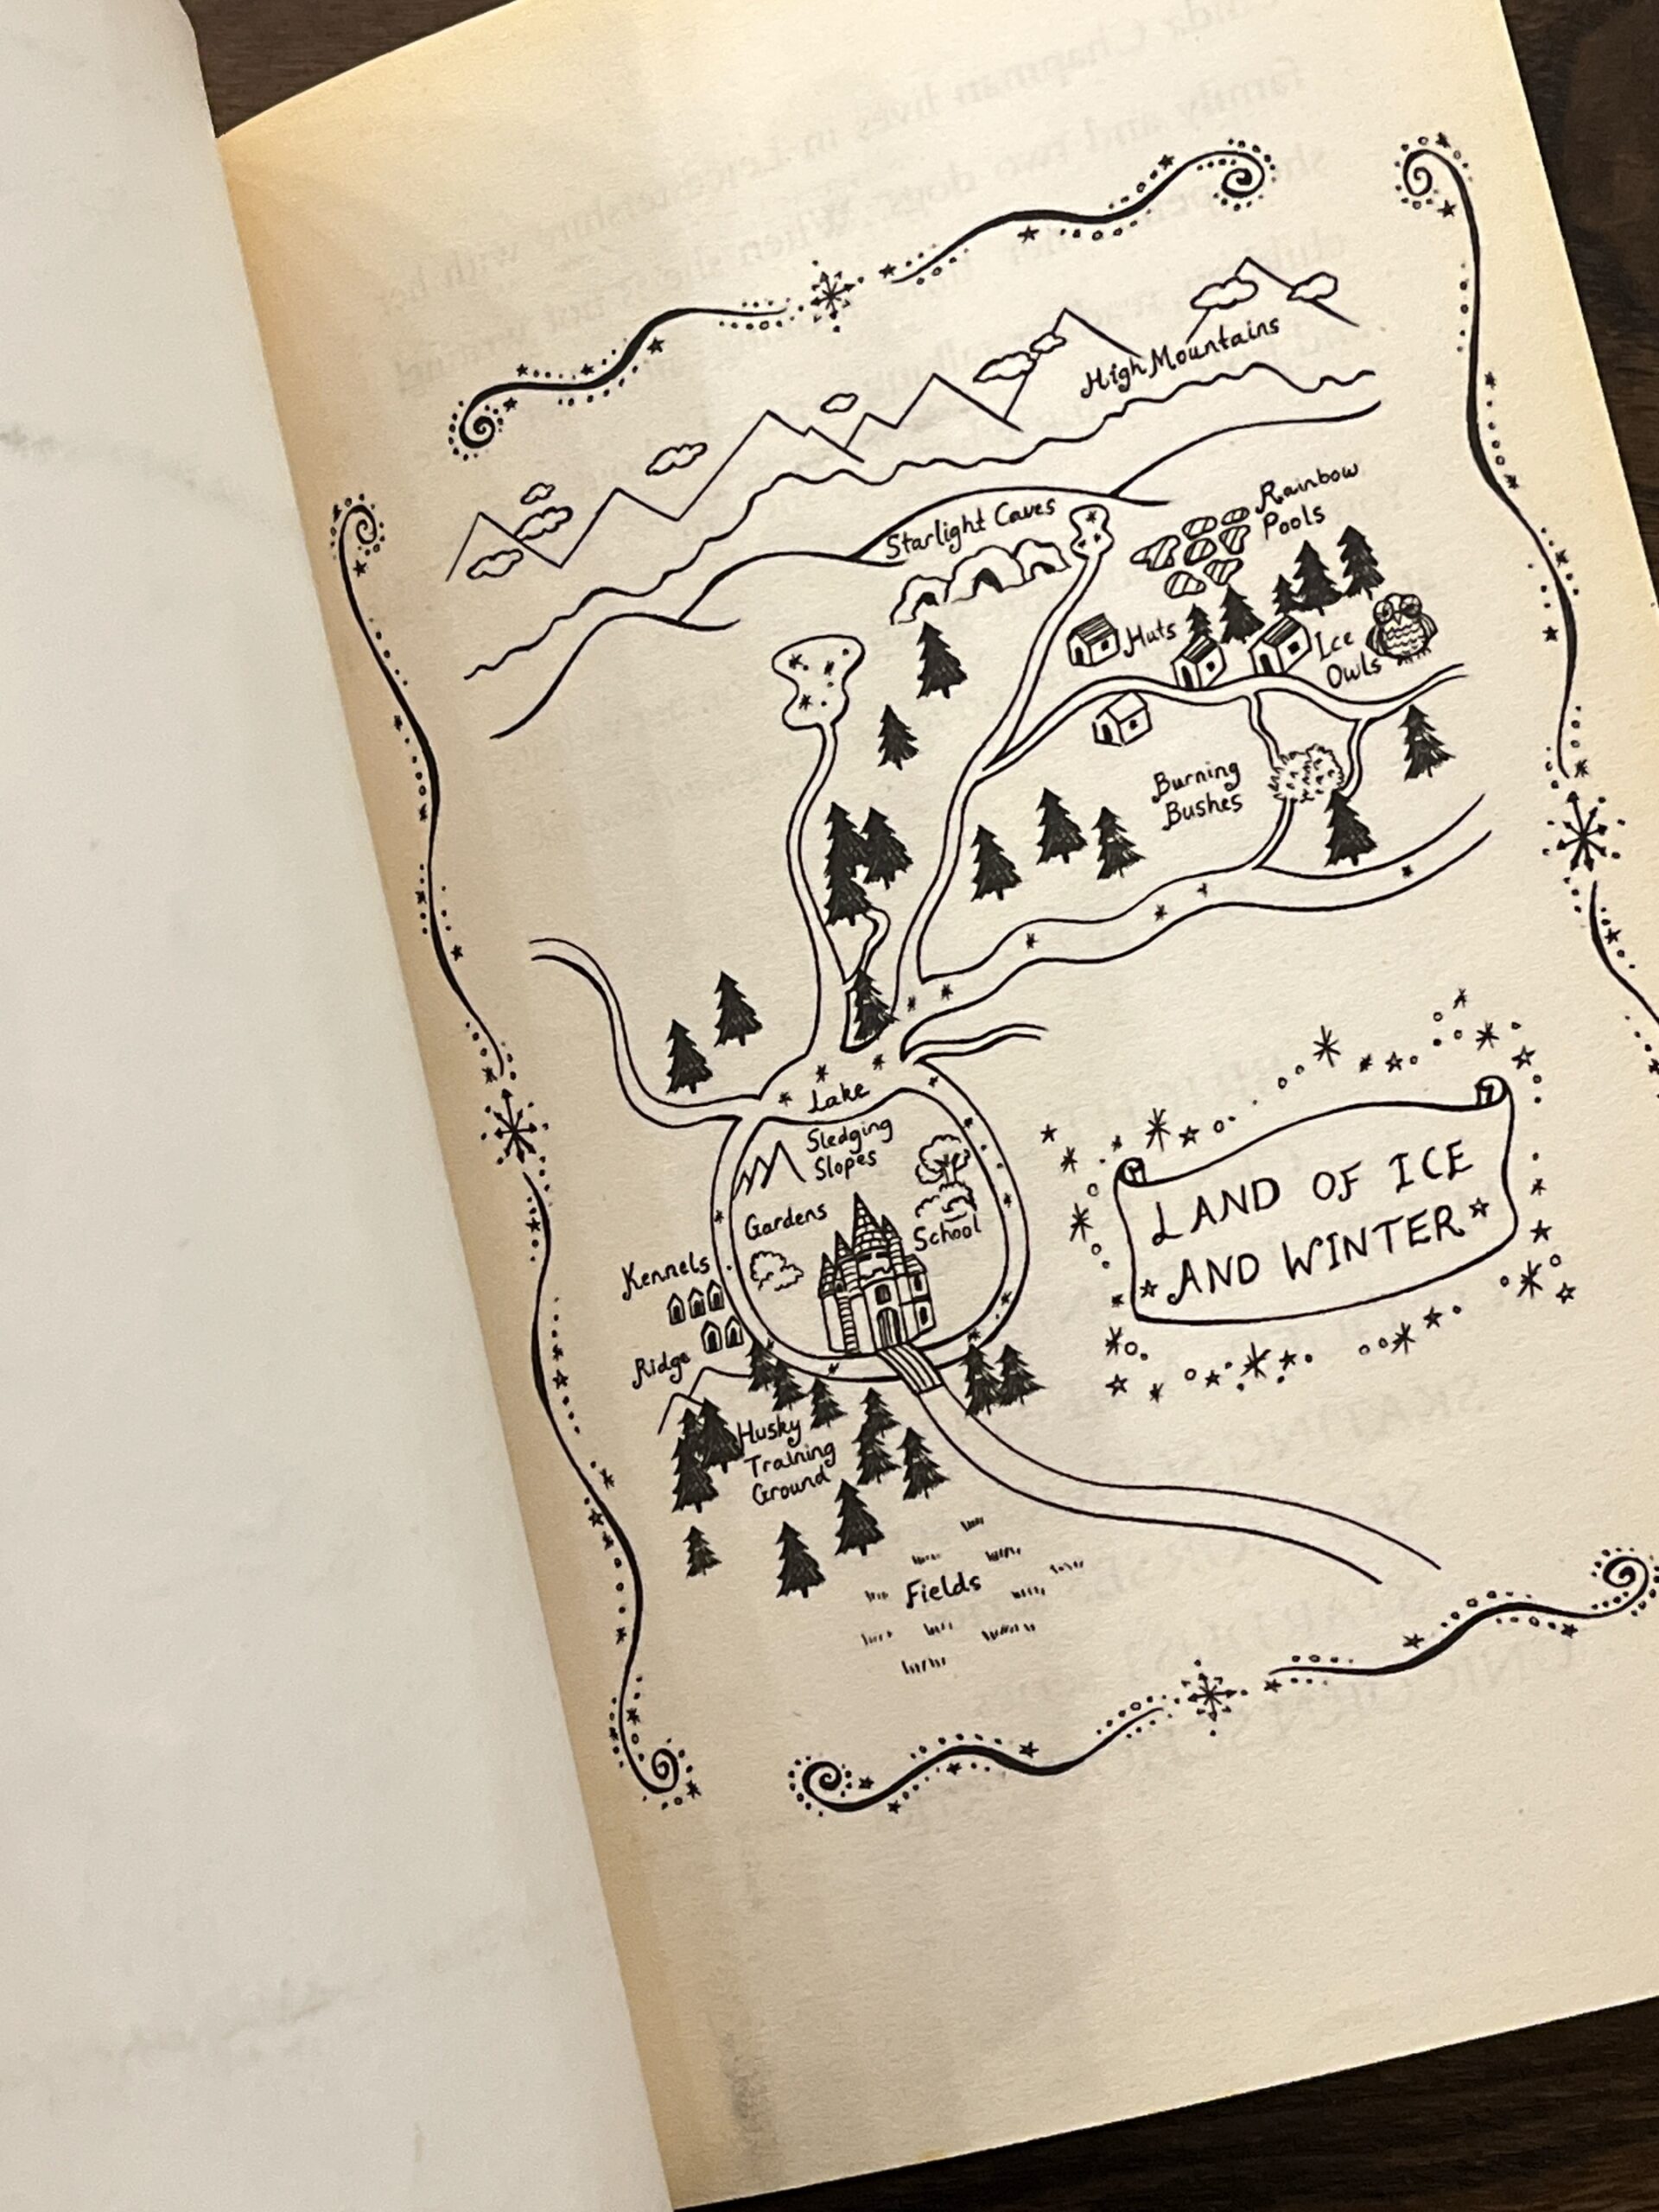 High Mountains
Starlight Caves
Rainbow
Pools
Huts
Ice
Owls
Burning
Bushes
Lake
Sledging
Slopes
Gardens
School
Kennels
Ridge
Husky
Training
Ground
Fields
LAND OF ICE
AND WINTER